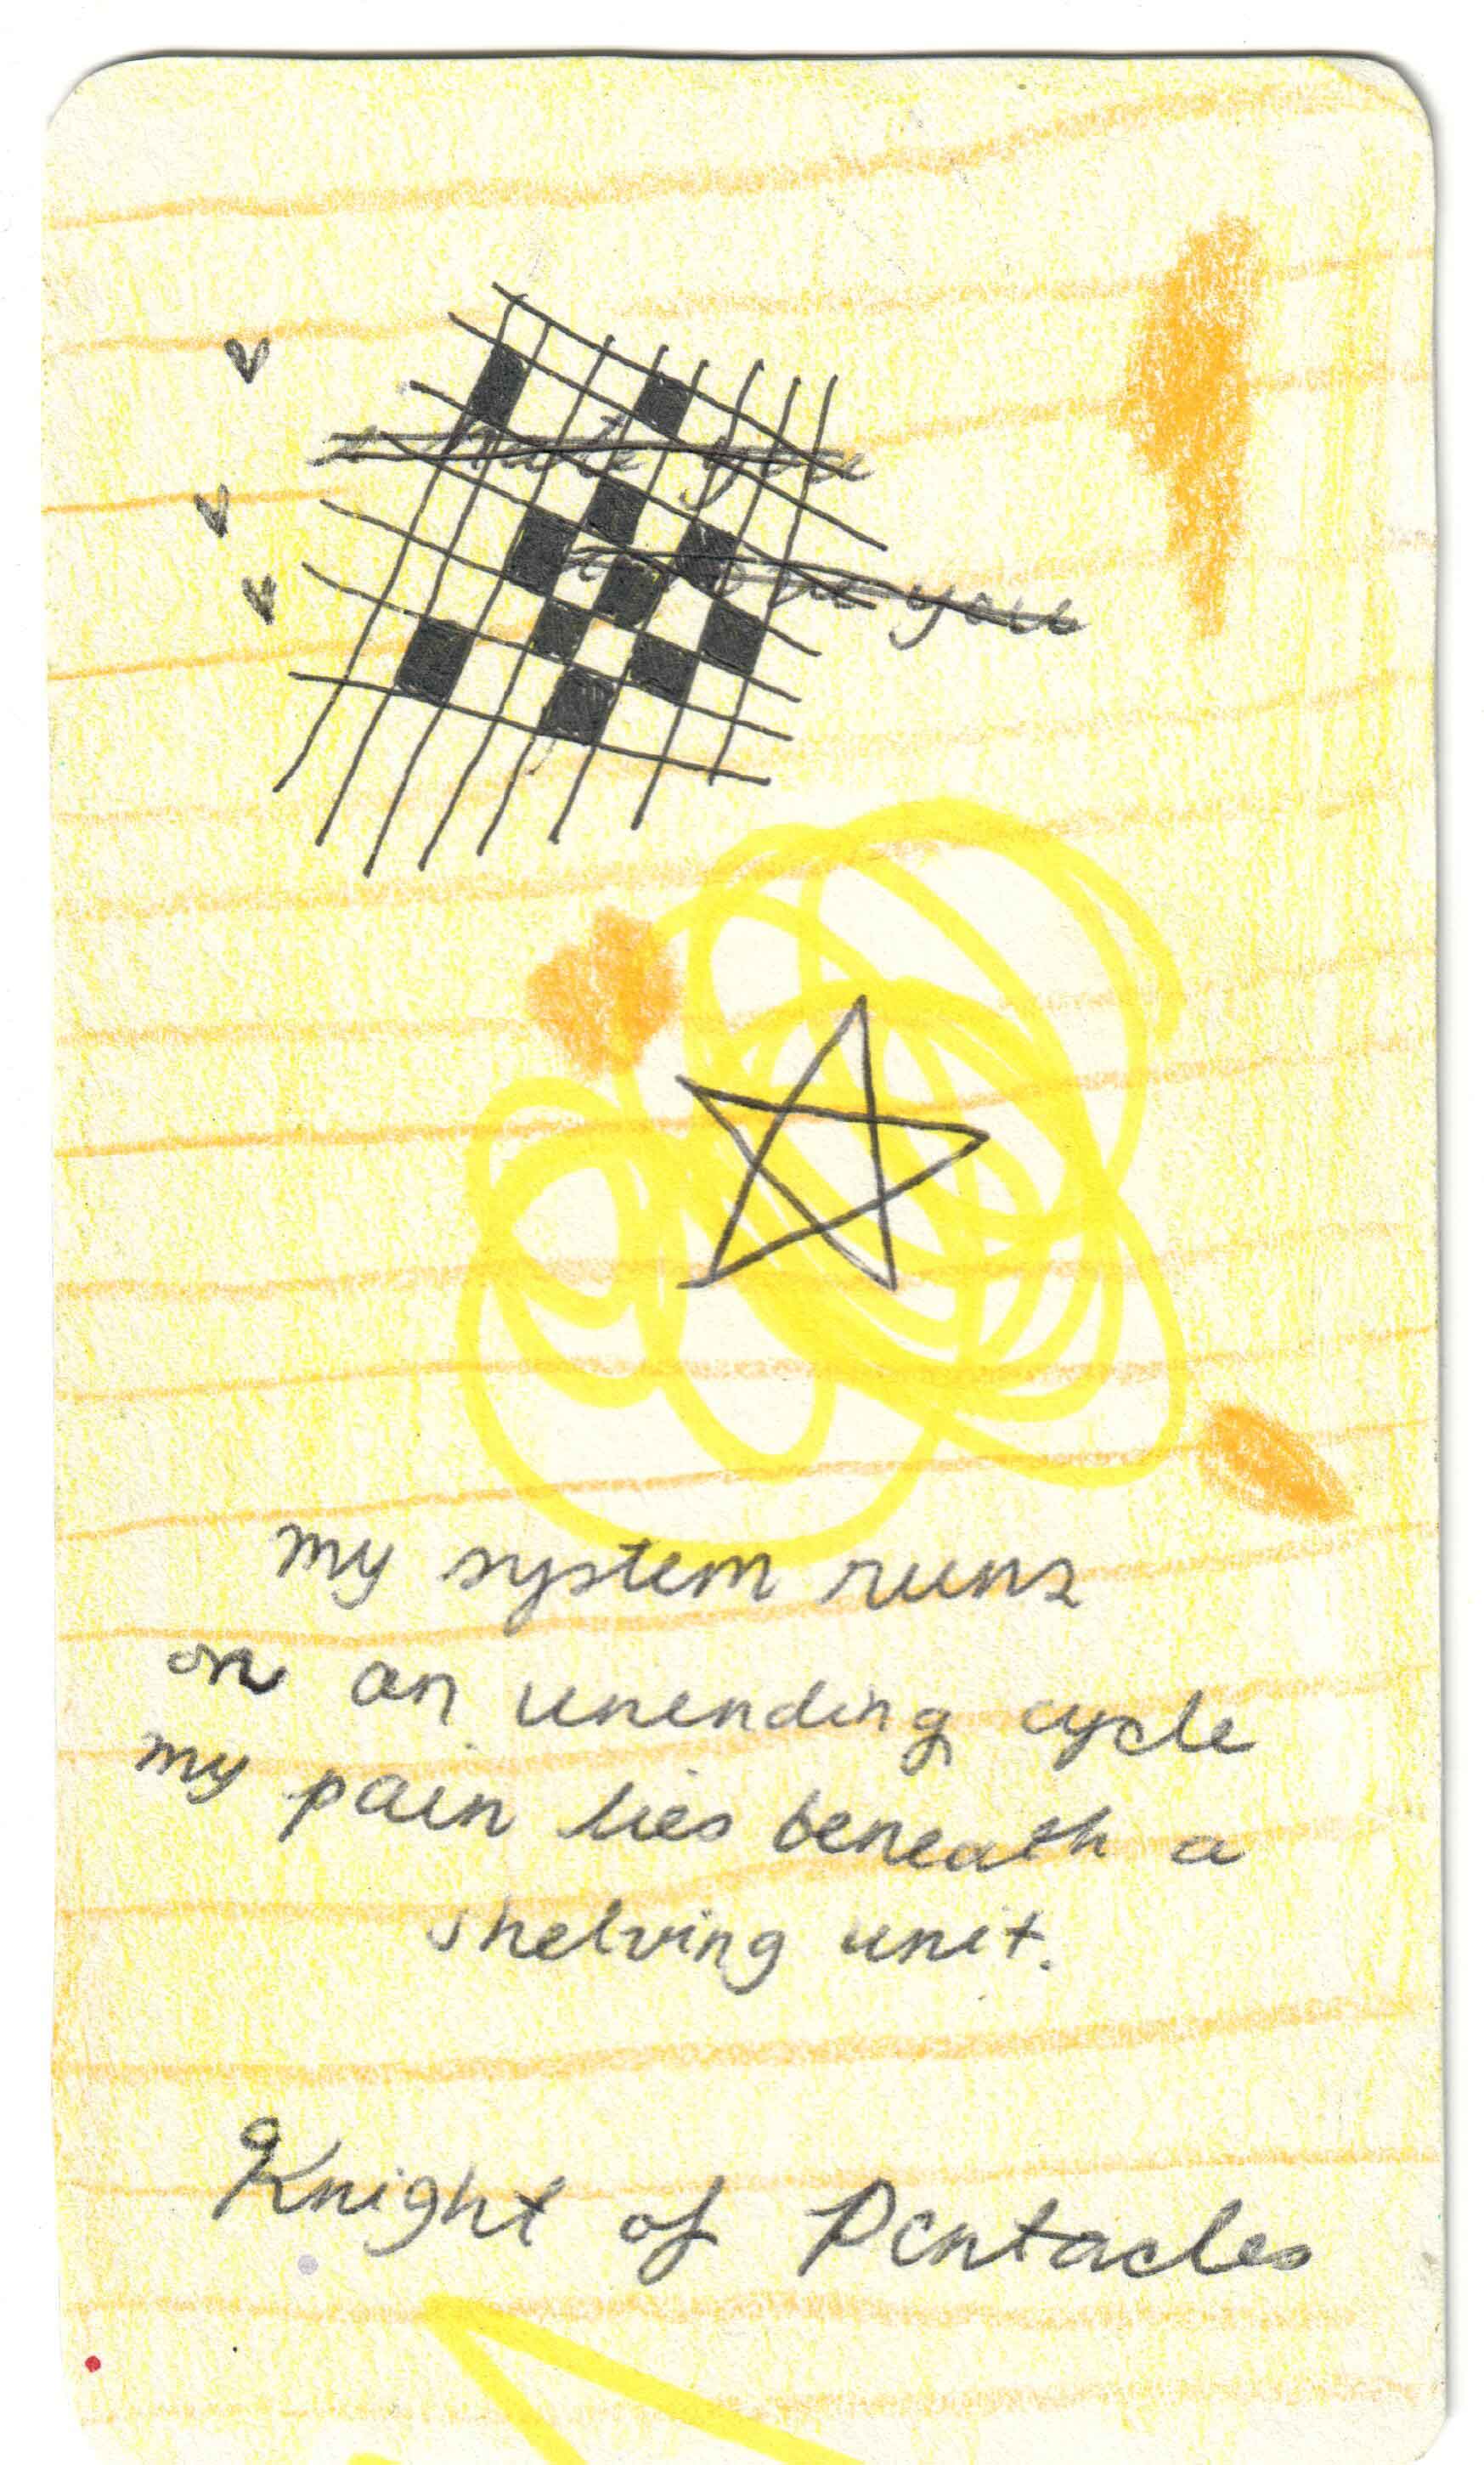 i hate you
i love you
my system runs
on an unending cycle
my pain lies beneath a
shelving unit.
Knight of Pentacles